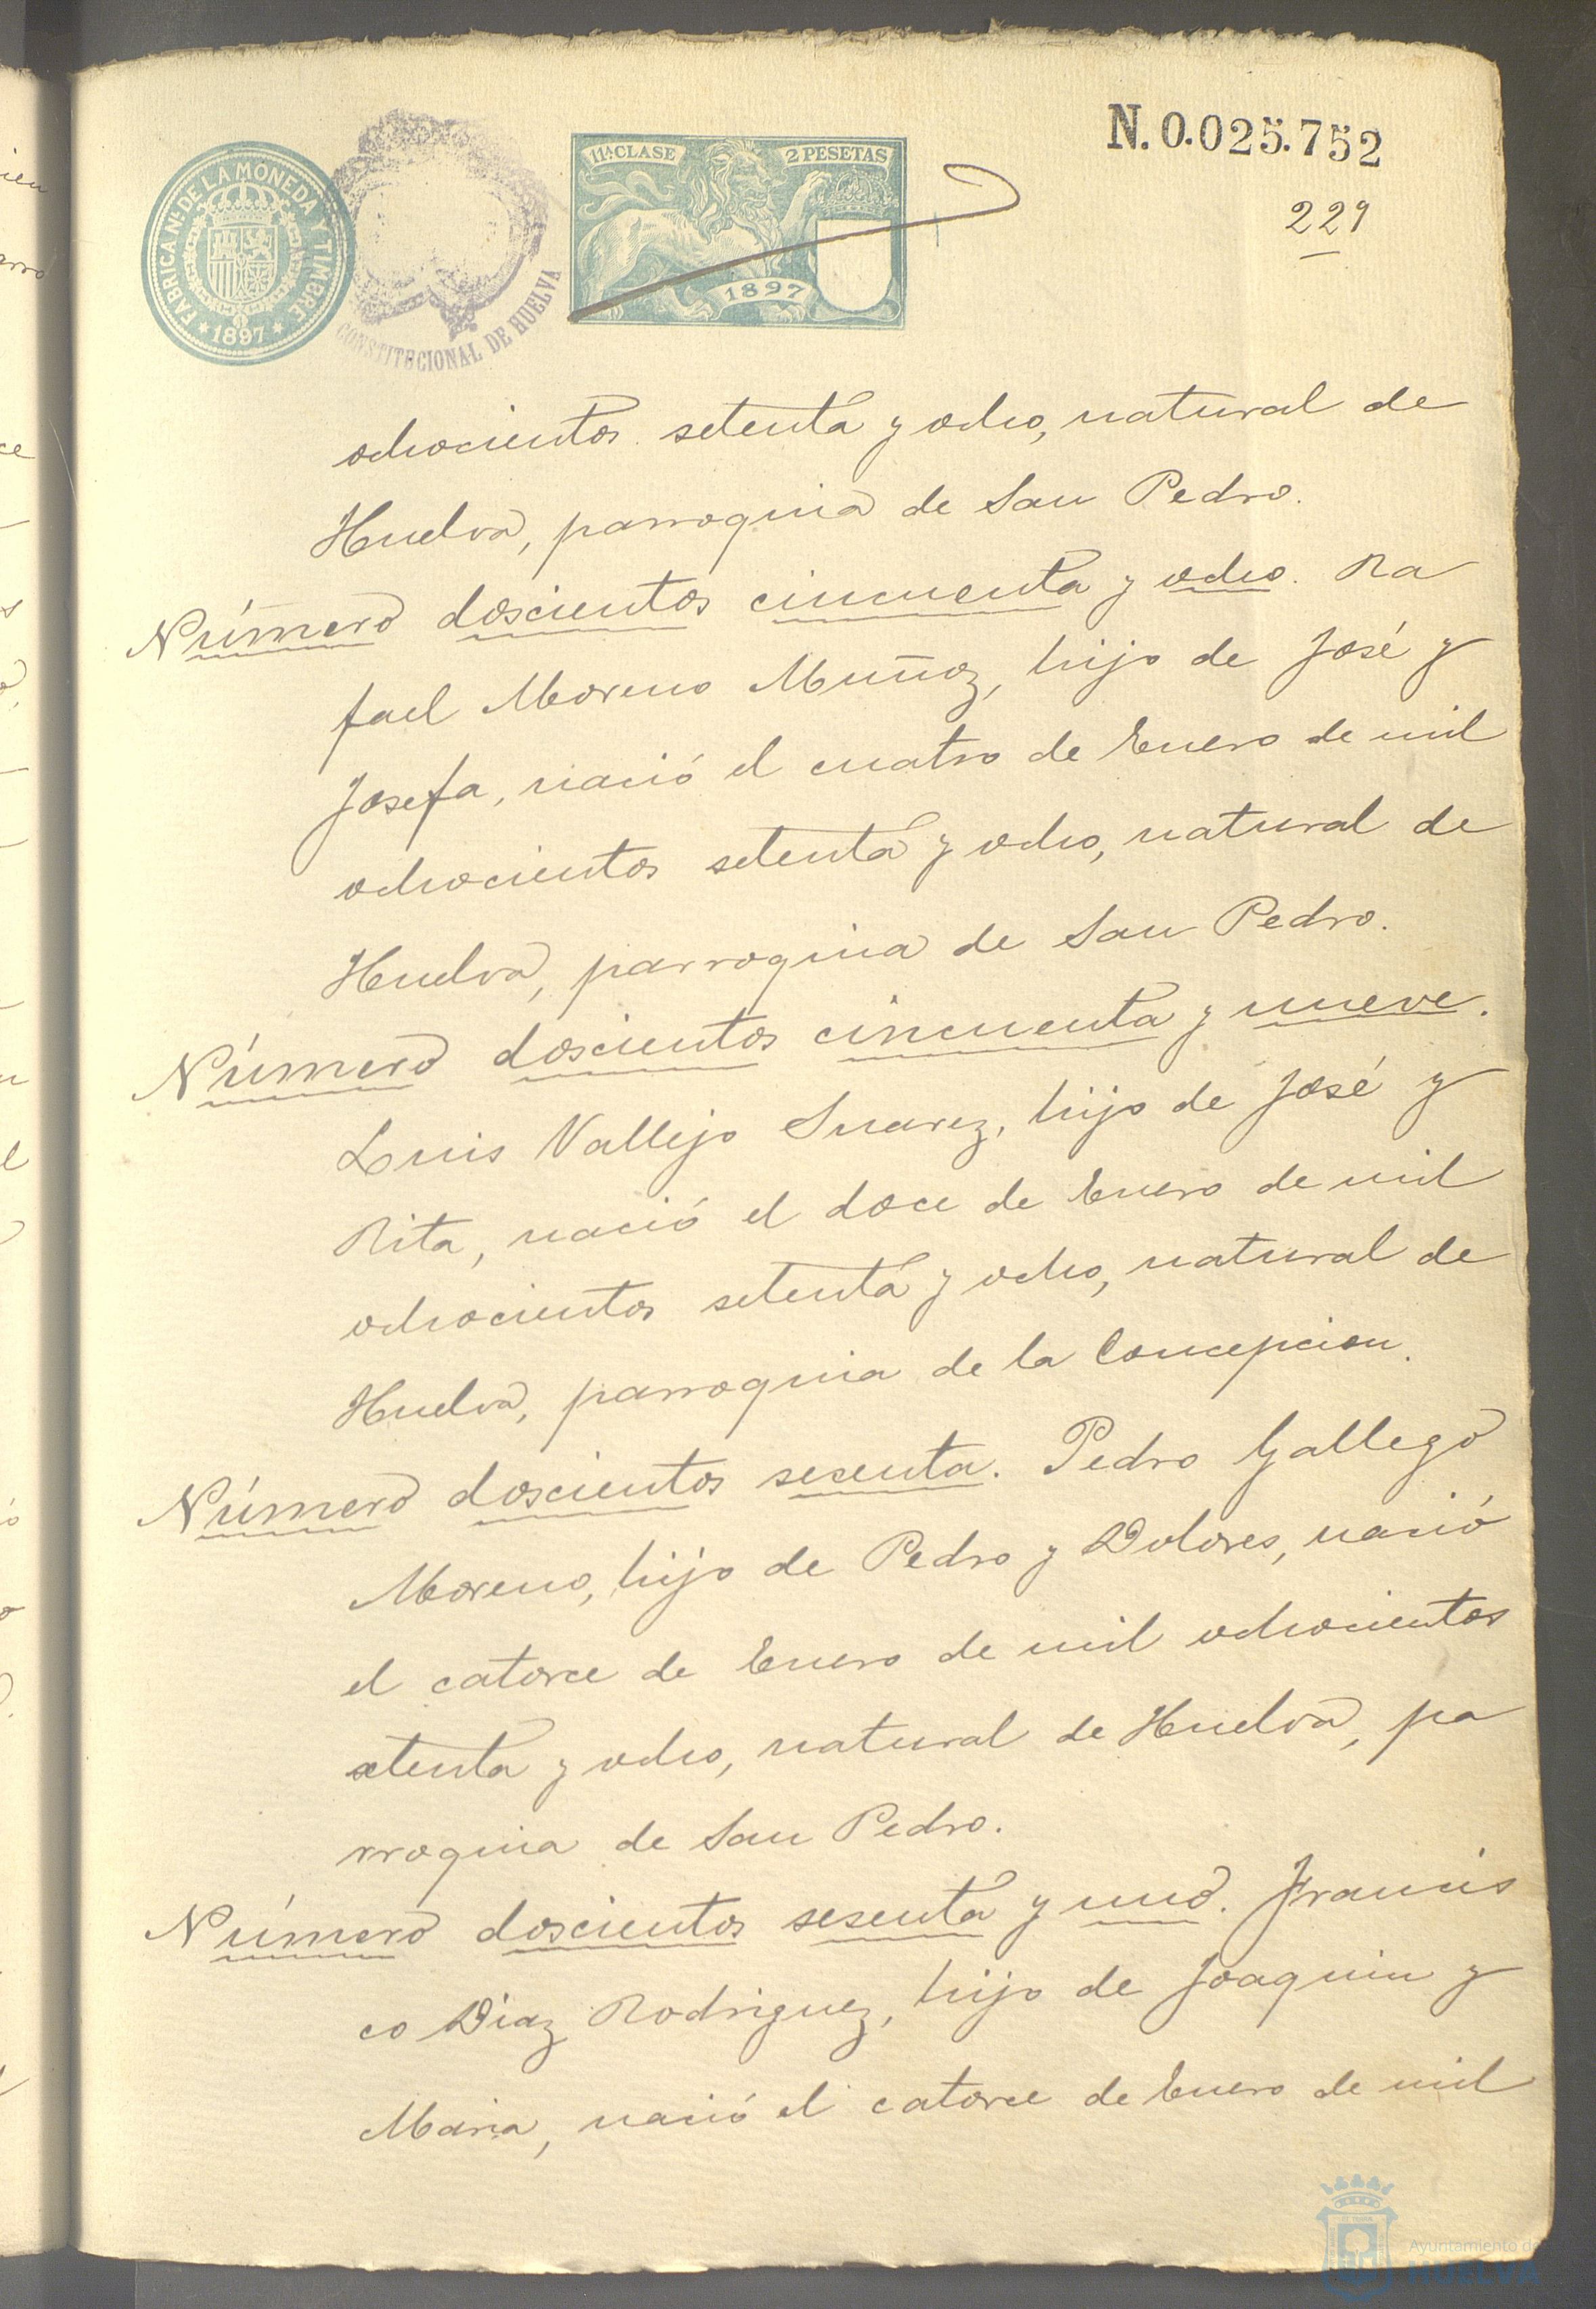 N. 0.025.752
229
FABRICA Nl. DE LA MONEDA Y TIMBRE
* 1897 *
CONSTITUCIONAL DE HUELVA
11ª CLASE
2 PESETAS
1897
ochocientos setenta y ocho, natural de
Huelva, parroquia de San Pedro.
Número doscientos cincuenta y ocho. Ra
fael Moreno Muñoz, hijo de José y
Josefa, nació el cuatro de Enero de mil
ochocientos setenta y ocho, natural de
Huelva, parroquia de San Pedro.
Número doscientos cincuenta y nueve.
Luis Vallejo Suarez, hijo de José y
Rita, nació el doce de Enero de mil
ochocientos setenta y ocho, natural de
Huelva, parroquia de la Concepcion.
Número doscientos sesenta. Pedro Gallego
Moreno, hijo de Pedro y Dolores, nació
el catorce de Enero de mil ochocientos
setenta y ocho, natural de Huelva, pa
rroquia de San Pedro.
Número doscientos sesenta y uno. Francis
co Diaz Rodriguez, hijo de Joaquin y
Maria, nació el catorce de Enero de mil
Ayuntamiento de
HUELVA